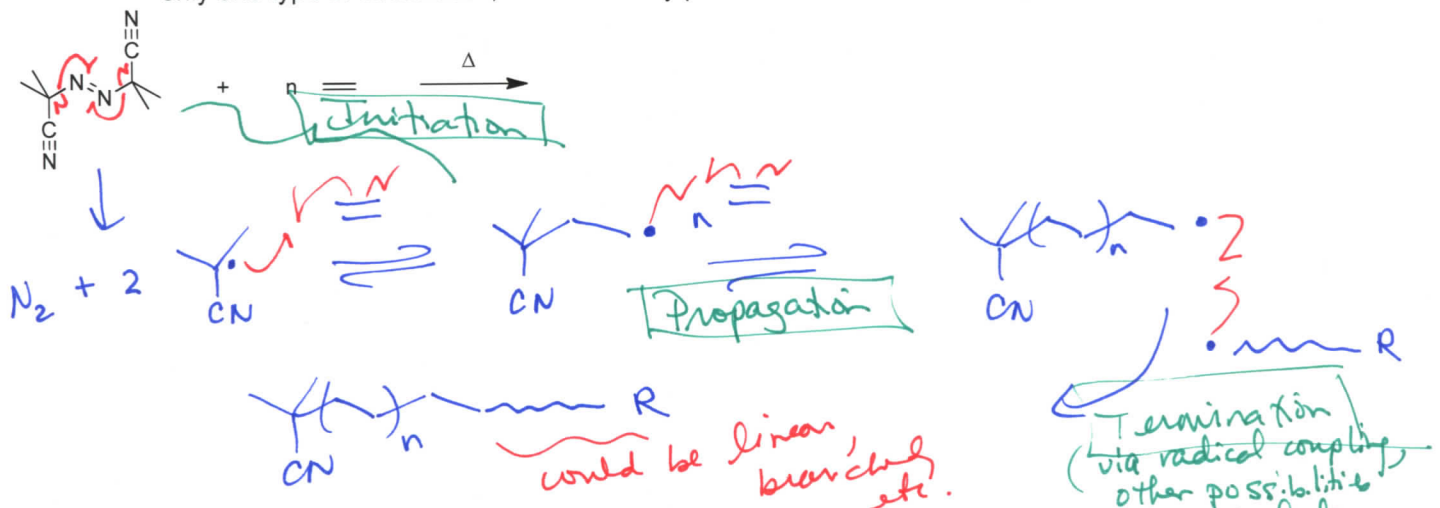 N
C
N=N
C
N
+ n Δ
Initiation
N2 + 2
CN
CN
n
Propagation
CN
n
2
R
n
CN
R
could be linear,
branched,
etc.
Termination
(via radical coupling,
other possibilities